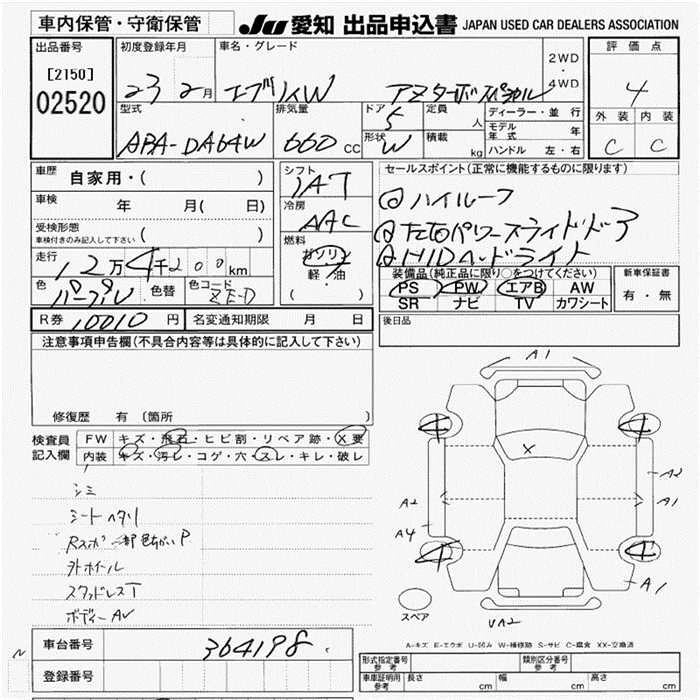 車内保管・守衛保管
JU 愛知 出品申込書 JAPAN USED CAR DEALERS ASSOCIATION
出品番号 初度登録年月 車名・グレード 評価点
[2150] 2WD
02520 23 2月 エブリイW アズターボスペシャル ・ 4WD 4
型式 排気量 ドア 5 定員 人 ディーラー・並行 外装 内装
ABA-DA64W 660 CC 形状 W 積載 kg モデル年式 年 C C
ハンドル 左・右
車歴 自家用・( ) シフト IAT セールスポイント(正常に機能するものに限ります)
車検 年 月( 日) 冷房 AAC ハイルーフ
受検形態 ( ) 左右パワースライドドア
車検付きのみ記入して下さい 燃料 HIDヘッドライト
走行 12万4千200km ガソリン
軽・油
( )
色 パープル 色替 色コード ZE-D
装備品(純正品に限り○をつけてください) 新車保証書
PS PW エアB AW 有・無
SR ナビ TV カワシート
R券 10010 円 名変通知期限 月 日 後日品
注意事項申告欄(不具合内容等は具体的に記入して下さい)
修復歴 有 (箇所 )
検査員 FW キズ・飛石・ヒビ割・リペア跡・X要
記入欄 内装 キズ・汚レ・コゲ・穴・スレ・キレ・破レ
シミ
シートヘタリ
外ホイール
スタッドレスT
A1
4 4
X
A2 A2
A1
A4
4 4
A1
スペア UA2
A-キズ E-エクボ U-凹み W-補修跡 S-サビ C-腐食 XX-交換済
車台番号 364198
登録番号
形式指定番号 参考 類別区分番号 参考
車庫証明用 参考 長さ cm 幅 cm 高さ cm